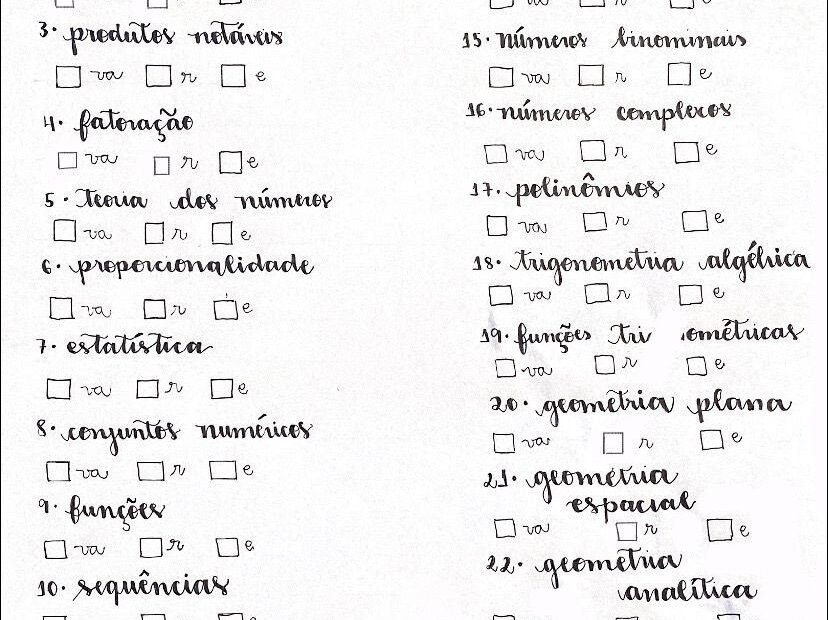 3. produtos notáveis
va r e
4. fatoração
va r e
5. Teoria dos números
va r e
6. proporcionalidade
va r e
7. estatística
va r e
8. conjuntos numéricos
va r e
9. funções
va r e
10. sequências
va r e
15. números binominais
va r e
16. números complexos
va r e
17. polinômios
va r e
18. trigonometria algébrica
va r e
19. funções tri ométricas
va r e
20. geometria plana
va r e
21. geometria
espacial
va r e
22. geometria
analítica